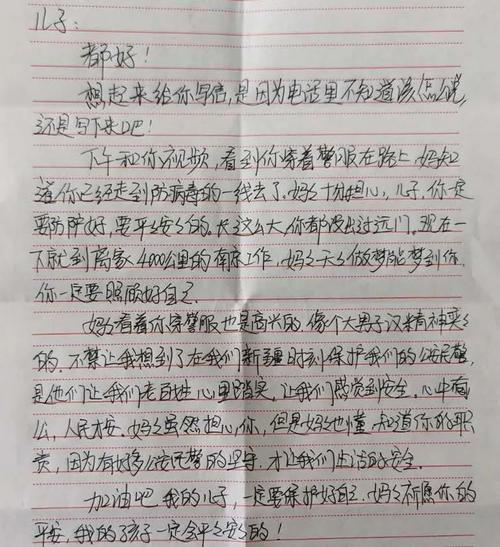 儿子:
都好!
想起来给你写信,是因为电话里不知道该怎么说,
还是写下来吧!
下午和你视频,看到你穿着警服在路上,妈知
道你已经走到防病毒的一线去了.妈妈十分担心,儿子.你一定
要防护好,要平平安安的.长这么大你都没出过远门.现在一
下就到离家4000公里的南京工作,妈妈天天做梦能梦到你.
你一定要照顾好自己.
妈妈看着你穿警服也是高兴的.像个大男子汉精神奕奕
的.不禁让我想到了在我们新疆时刻保护我们的公安民警,
是他们让我们老百姓心里踏实.让我们感觉到安全.心中有
公,人民才安.妈妈虽然担心你,但是妈妈也懂.知道你的职
责,因为有好多公安民警的坚守.才让我们生活的安全.
加油吧 我的儿子,一定要保护好自己.妈妈祈愿你的
平安,我的孩子一定会平平安安的!